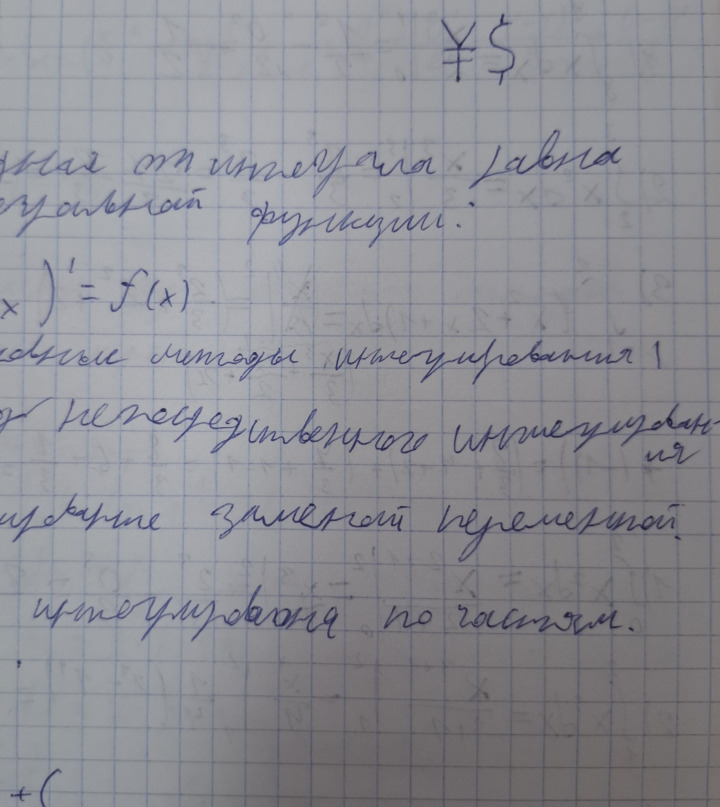 ¥$
дная от интеграла равна
функции:
x )' = f(x)
овные методы интегрирования
непосредственного интегрирован-
ия
ирование заменой переменной.
интегрирования по частям.
+ (